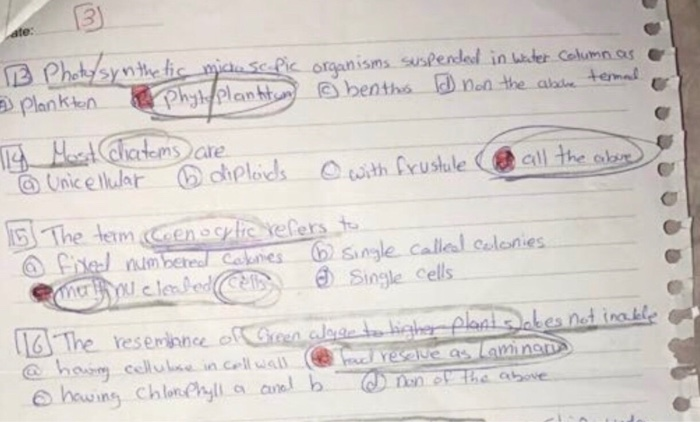 3
ate:
13 Photosynthetic microscopic organisms suspended in water column as termed
a plankton b phytoplankton c benthos d non the above
14 Most diatoms are
a unicellular b diploids c with frustule d all the above
15 The term Coenocytic refers to
a fixed numbered colonies b single called colonies
multi nucleated cells d Single cells
16 The resemblance of Green algae to higher plants does not include
a having cellulose in cell wall food reserve as Laminarin
c having chlorophyll a and b d non of the above